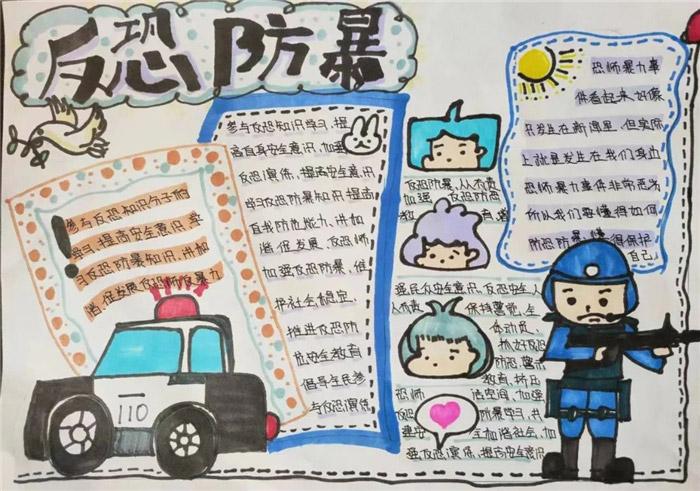 反恐防暴
参与反恐知识学习,提
高自身安全意识,加强
反恐演练,提高安全意识
学习反恐防暴知识提高
自我防范能力,讲和
谐,促发展,反恐师
加强反恐防暴,维
护社会稳定,
推进反恐防
范安全教育
倡导全民参
与反恐演练
参与反恐知识
学习,提高安全意识,学
习反恐防暴知识,讲和
谐,促发展
110
反恐防暴,人人有责
加强
反恐防范
教育
强民众安全意识,反恐安全人
人有责
保持警觉,全
体动员,
抓好反恐
防范
教育,挤压
恐师
活空间,加强
反恐
防暴学习,共
建安
全和谐社会,加
强反恐演练,提高安全意识
恐师暴力事
件看起来,好像
只发生在新闻里,但实际
上就是发生在我们身边
恐师暴力事件非常恶劣
所以我们要懂得如何
防恐防暴,懂得保护
自己